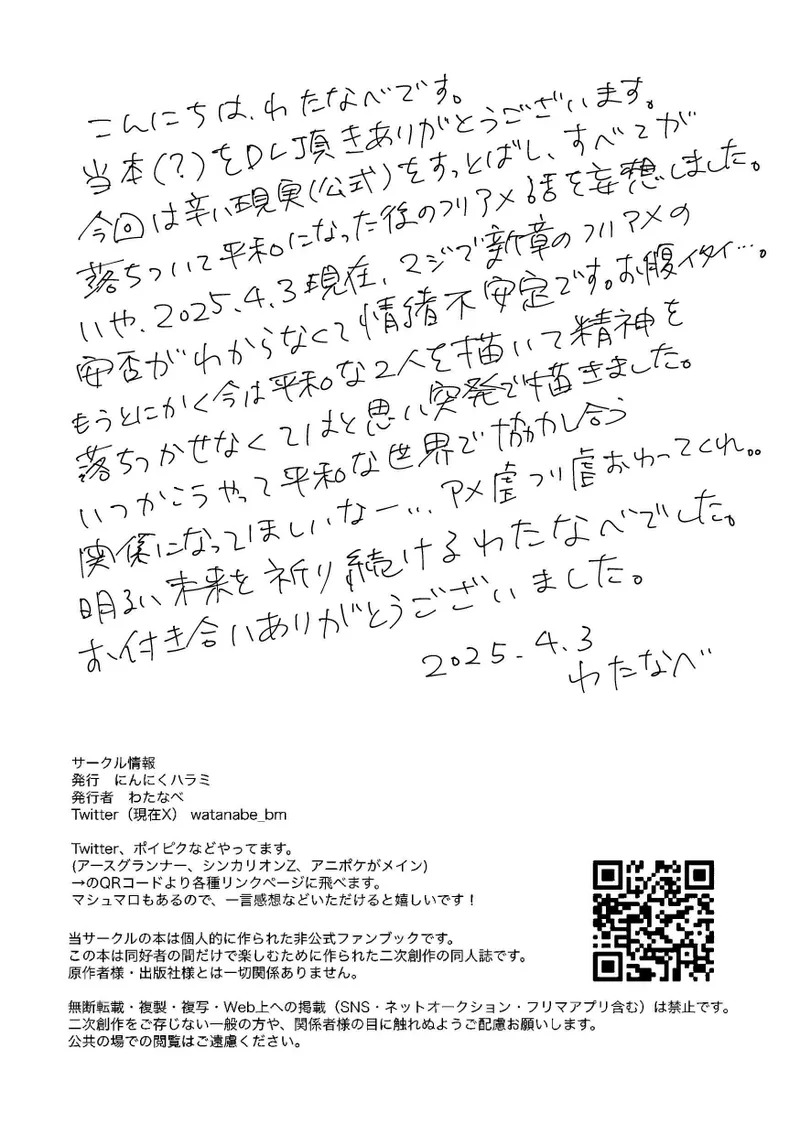 こんにちは、わたなべです。
当本(?)をDL頂きありがとうございます。
今回は辛い現実(公式)をすっとばし、すべてが
落ちついて平和になった後のフリアメ話を妄想しました。
いや、2025.4.3現在、マジで新章のフリアメの
安否がわからなくて情緒不安定です。お腹イタイ…。
もうとにかく今は平和な2人を描いて精神を
落ちつかせなくてはと思い突発で描きました。
いつかこうやって平和な世界で協力し合う
関係になってほしいなー… アメ虐フリ虐おわってくれ。。
明るい未来を祈り続けるわたなべでした。
お付き合いありがとうございました。
2025.4.3
わたなべ
サークル情報
発行 にんにくハラミ
発行者 わたなべ
Twitter（現在X） watanabe_bm
Twitter、ポイピクなどやってます。
(アースグランナー、シンカリオンZ、アニポケがメイン)
→のQRコードより各種リンクページに飛べます。
マシュマロもあるので、一言感想などいただけると嬉しいです！
当サークルの本は個人的に作られた非公式ファンブックです。
この本は同好者の間だけで楽しむために作られた二次創作の同人誌です。
原作者様・出版社様とは一切関係ありません。
無断転載・複製・複写・Web上への掲載（SNS・ネットオークション・フリマアプリ含む）は禁止です。
二次創作をご存じない一般の方や、関係者様の目に触れぬようご配慮お願いします。
公共の場での閲覧はご遠慮ください。